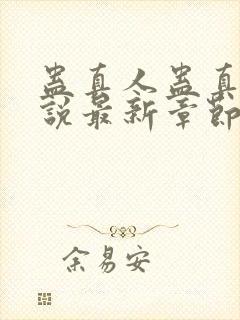 蛊真人蛊真
說最新章節
余易安